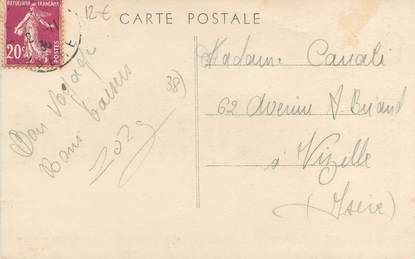 REPUBLIQUE FRANÇAISE
20c
POSTES
12 €
CARTE POSTALE
Bon Voyage
Bons baisers
38)
Madame Cavali
62 Avenue A. Briand
à Vizelle
(Isère)